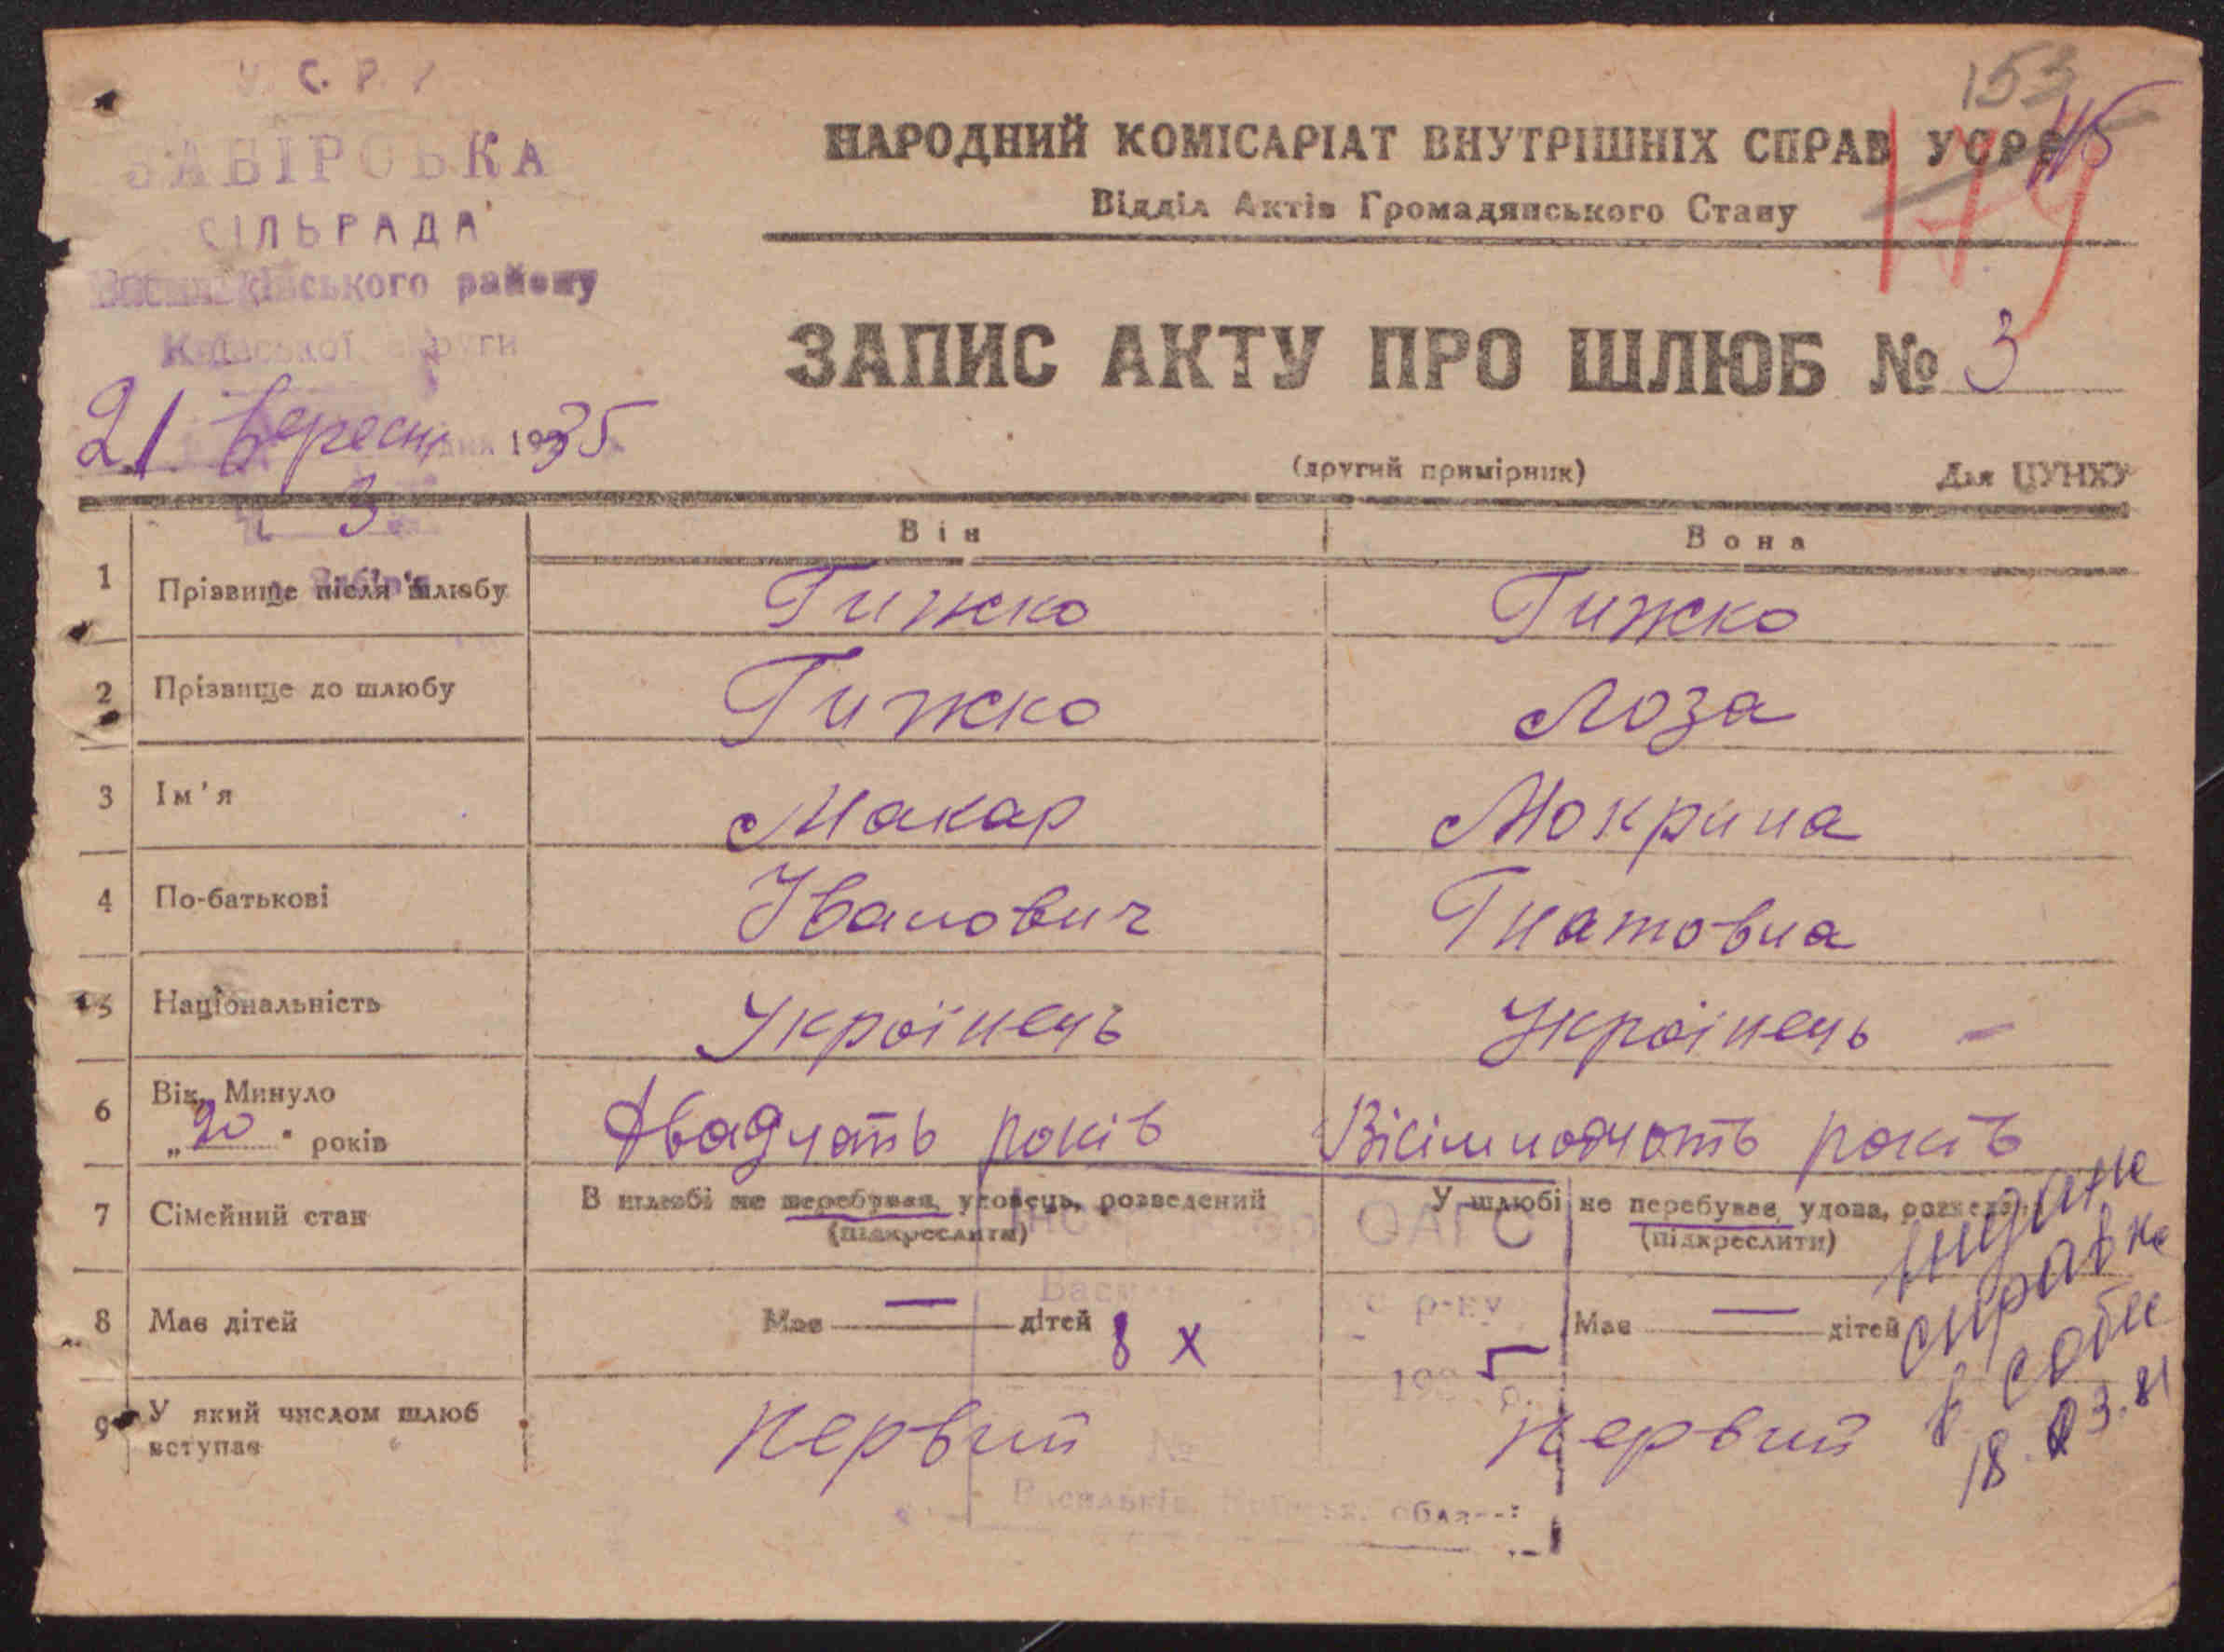 У. С. Р. Р.
ЗАБІРСЬКА
СІЛЬРАДА
Васильківського району
Київської округи
21 вересня 1935
3
153
115
179
НАРОДНИЙ КОМІСАРІАТ ВНУТРІШНІХ СПРАВ УСРР
Відділ Актів Громадянського Стану
ЗАПИС АКТУ ПРО ШЛЮБ № 3
(другий примірник) Для ЦУНХУ
Він Вона
1 Прізвище після шлюбу Гижко Гижко
2 Прізвище до шлюбу Гижко Лоза
3 Ім'я Макар Мокрина
4 По-батькові Іванович Гнатовна
5 Національність Українець Українець -
6 Вік. Минуло
„20" років Двадчать років Вісімнадчать років
7 Сімейний стан В шлюбі не перебував, удовець, розведений У шлюбі не перебувае, удова, розведена
(підкреслити) (підкреслити)
Інспектор ОАГС
р-ну
8 Має дітей Має — дітей 8 х Має — дітей
1935 р.
9 У який числом шлюб
вступає Первий Первий
№
Васильків, Київськ. області
видана
справка
в собес
18.03.81